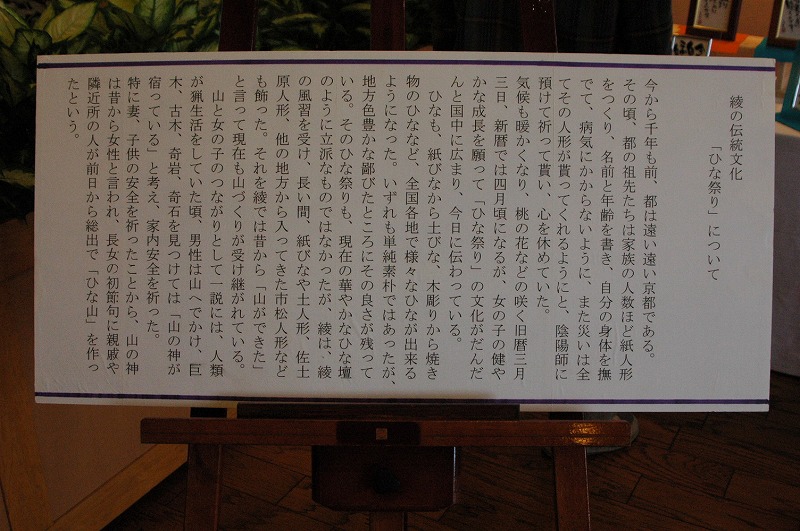 綾の伝統文化
「ひな祭り」について
今から千年も前、都は遠い遠い京都である。
その頃、都の祖先たちは家族の人数ほど紙人形
をつくり、名前と年齢を書き、自分の身体を撫
でて、病気にかからないように、また災いは全
てその人形が貰ってくれるようにと、陰陽師に
預けて祈って貰い、心を休めていた。
気候も暖かくなり、桃の花などの咲く旧暦三月
三日、新暦では四月頃になるが、女の子の健や
かな成長を願って「ひな祭り」の文化がだんだ
んと国中に広まり、今日に伝わっている。
ひなも、紙びなから土びな、木彫りから焼き
物のひななど、全国各地で様々なひなが出来る
ようになった。いずれも単純素朴ではあったが、
地方色豊かな鄙びたところにその良さが残って
いる。そのひな祭りも、現在の華やかなひな壇
のように立派なものではなかったが、綾は、綾
の風習を受け、長い間、紙びなや土人形、佐土
原人形、他の地方から入ってきた市松人形など
も飾った。それを綾では昔から「山ができた」
と言って現在も山づくりが受け継がれている。
山と女の子のつながりとして一説には、人類
が猟生活をしていた頃、男性は山へでかけ、巨
木、古木、奇岩、奇石を見つけては「山の神が
宿っている」と考え、家内安全を祈った。
特に妻、子供の安全を祈ったことから、山の神
は昔から女性と言われ、長女の初節句に親戚や
隣近所の人が前日から総出で「ひな山」を作っ
たという。